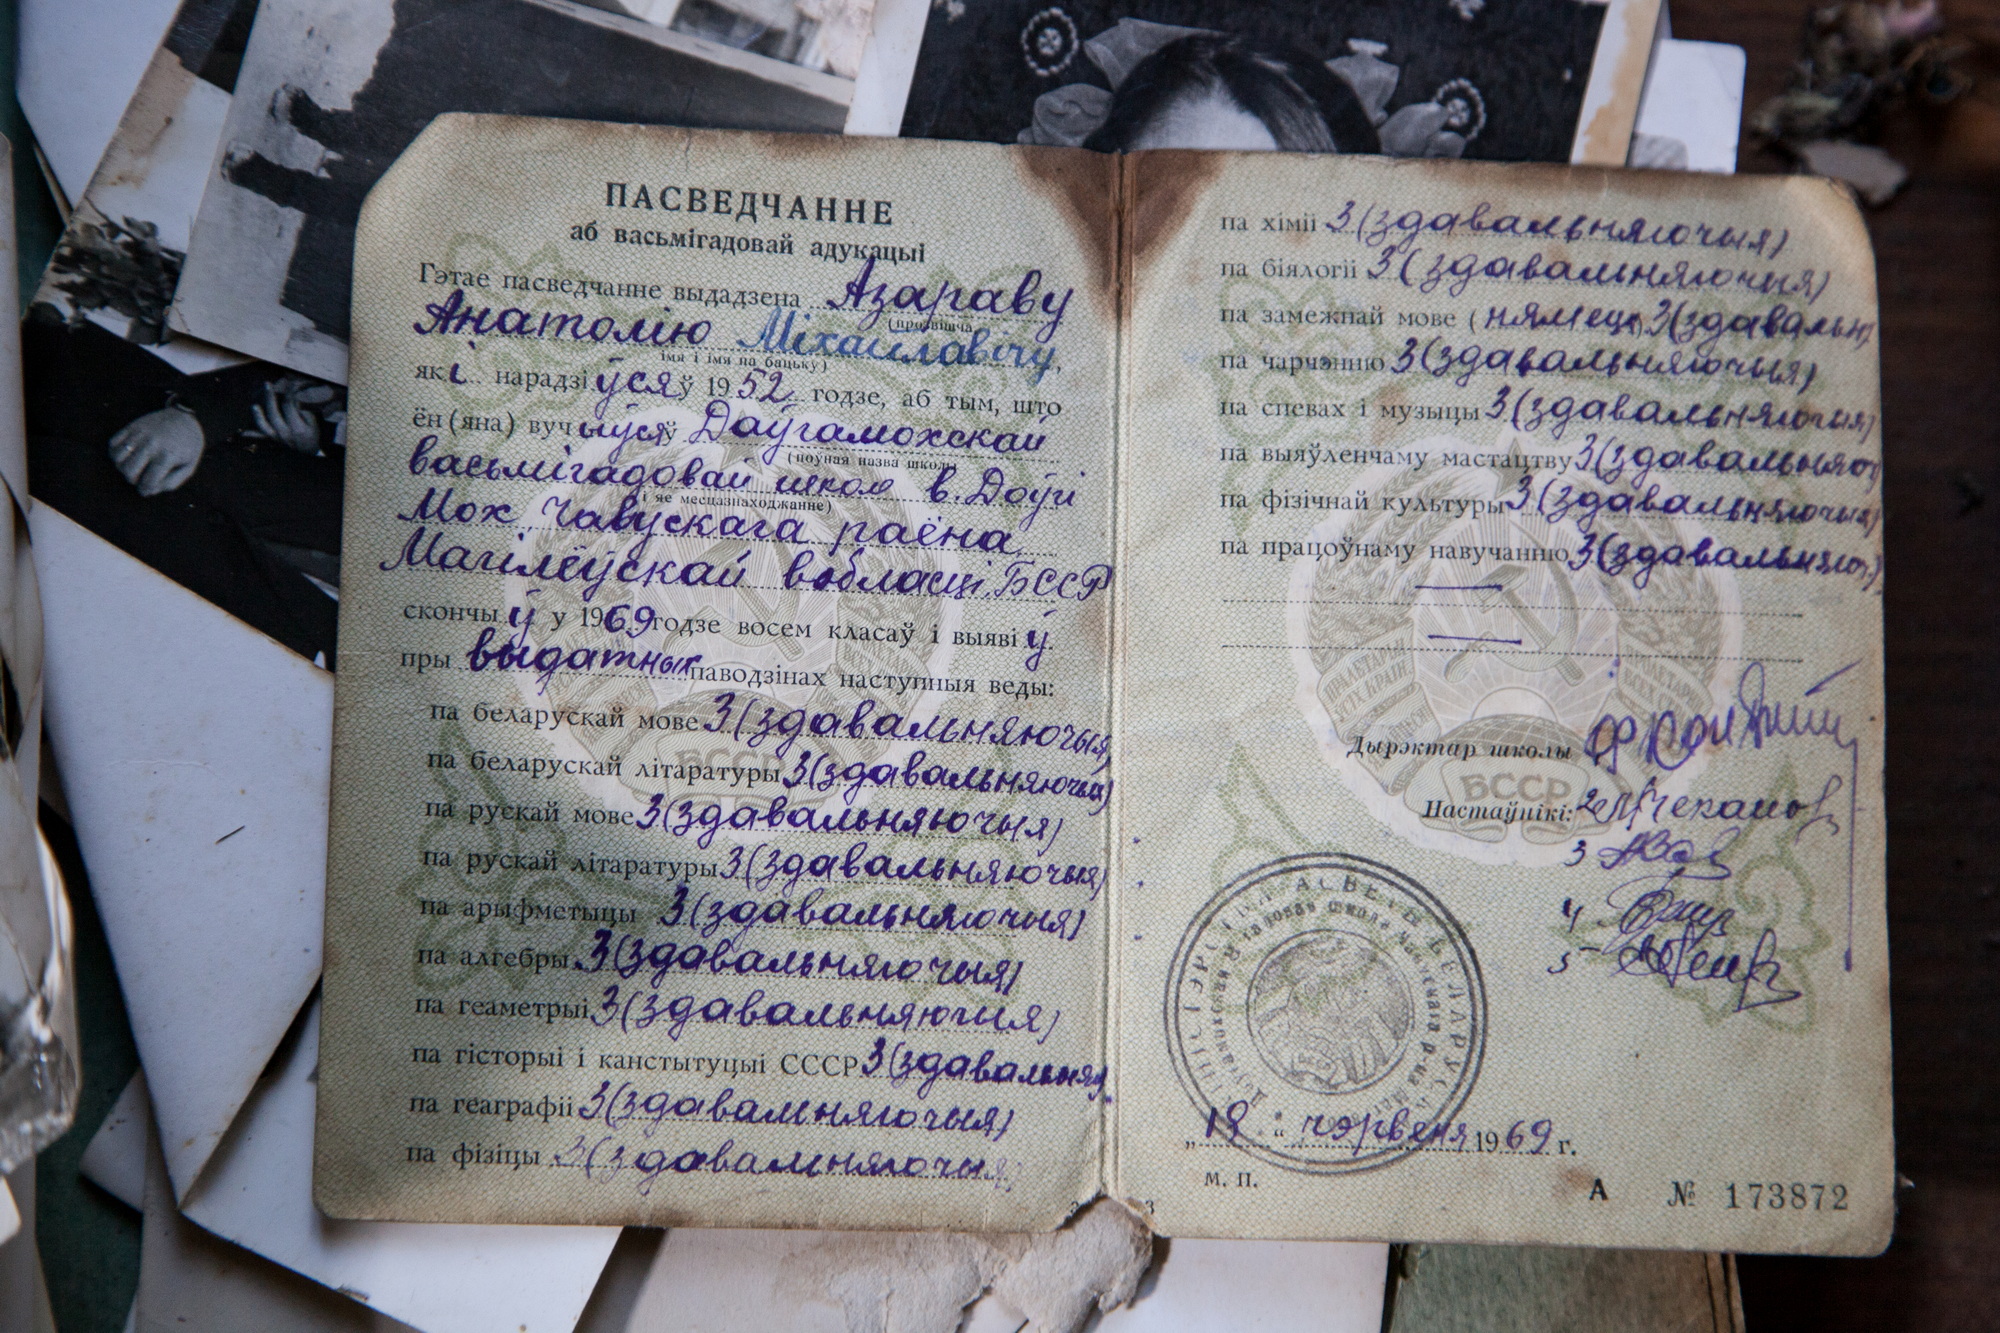 ПАСВЕДЧАННЕ
аб васьмігадовай адукацыі
Гэтае пасведчанне выдадзена Азараву
(прозвішча,
Анатолію Міхайлавічу,
імя і імя па бацьку)
які нарадзіўся ў 1952 годзе, аб тым, што
ён (яна) вучыўся ў Даўгамохскай
(поўная назва школы
васьмігадовай школе в. Доўгі
і яе месцазнаходжанне)
Мох, Чавускага раёна
Магілёўскай вобласці, БССР
скончыў у 1969 годзе восем класаў і выявіў
пры выдатных паводзінах наступныя веды:
па беларускай мове 3 (здавальняючыя)
па беларускай літаратуры 3 (здавальняючыя)
па рускай мове 3 (здавальняючыя)
па рускай літаратуры 3 (здавальняючыя)
па арыфметыцы 3 (здавальняючыя)
па алгебры 3 (здавальняючыя)
па геаметрыі 3 (здавальняючыя)
па гісторыі і канстытуцыі СССР 3 (здавальняю
па геаграфіі 3 (здавальняючыя)
па фізіцы 3 (здавальняючыя)
па хіміі 3 (здавальняючыя)
па біялогіі 3 (здавальняючыя)
па замежнай мове (нямецк) 3 (здавальн)
па чарчэнню 3 (здавальняючыя)
па спевах і музыцы 3 (здавальняючыя)
па выяўленчаму мастацтву 3 (здавальняюч
па фізічнай культуры 3 (здавальняючыя)
па працоўнаму навучанню 3 (здавальняюч.)
БССР
Дырэктар школы
Настаўнікі: 2
3
4
5
МІНІСТЭРСТВА АСВЕТЫ БЕЛАРУС
„18“ чэрвеня 1969 г.
М. П.
А № 173872